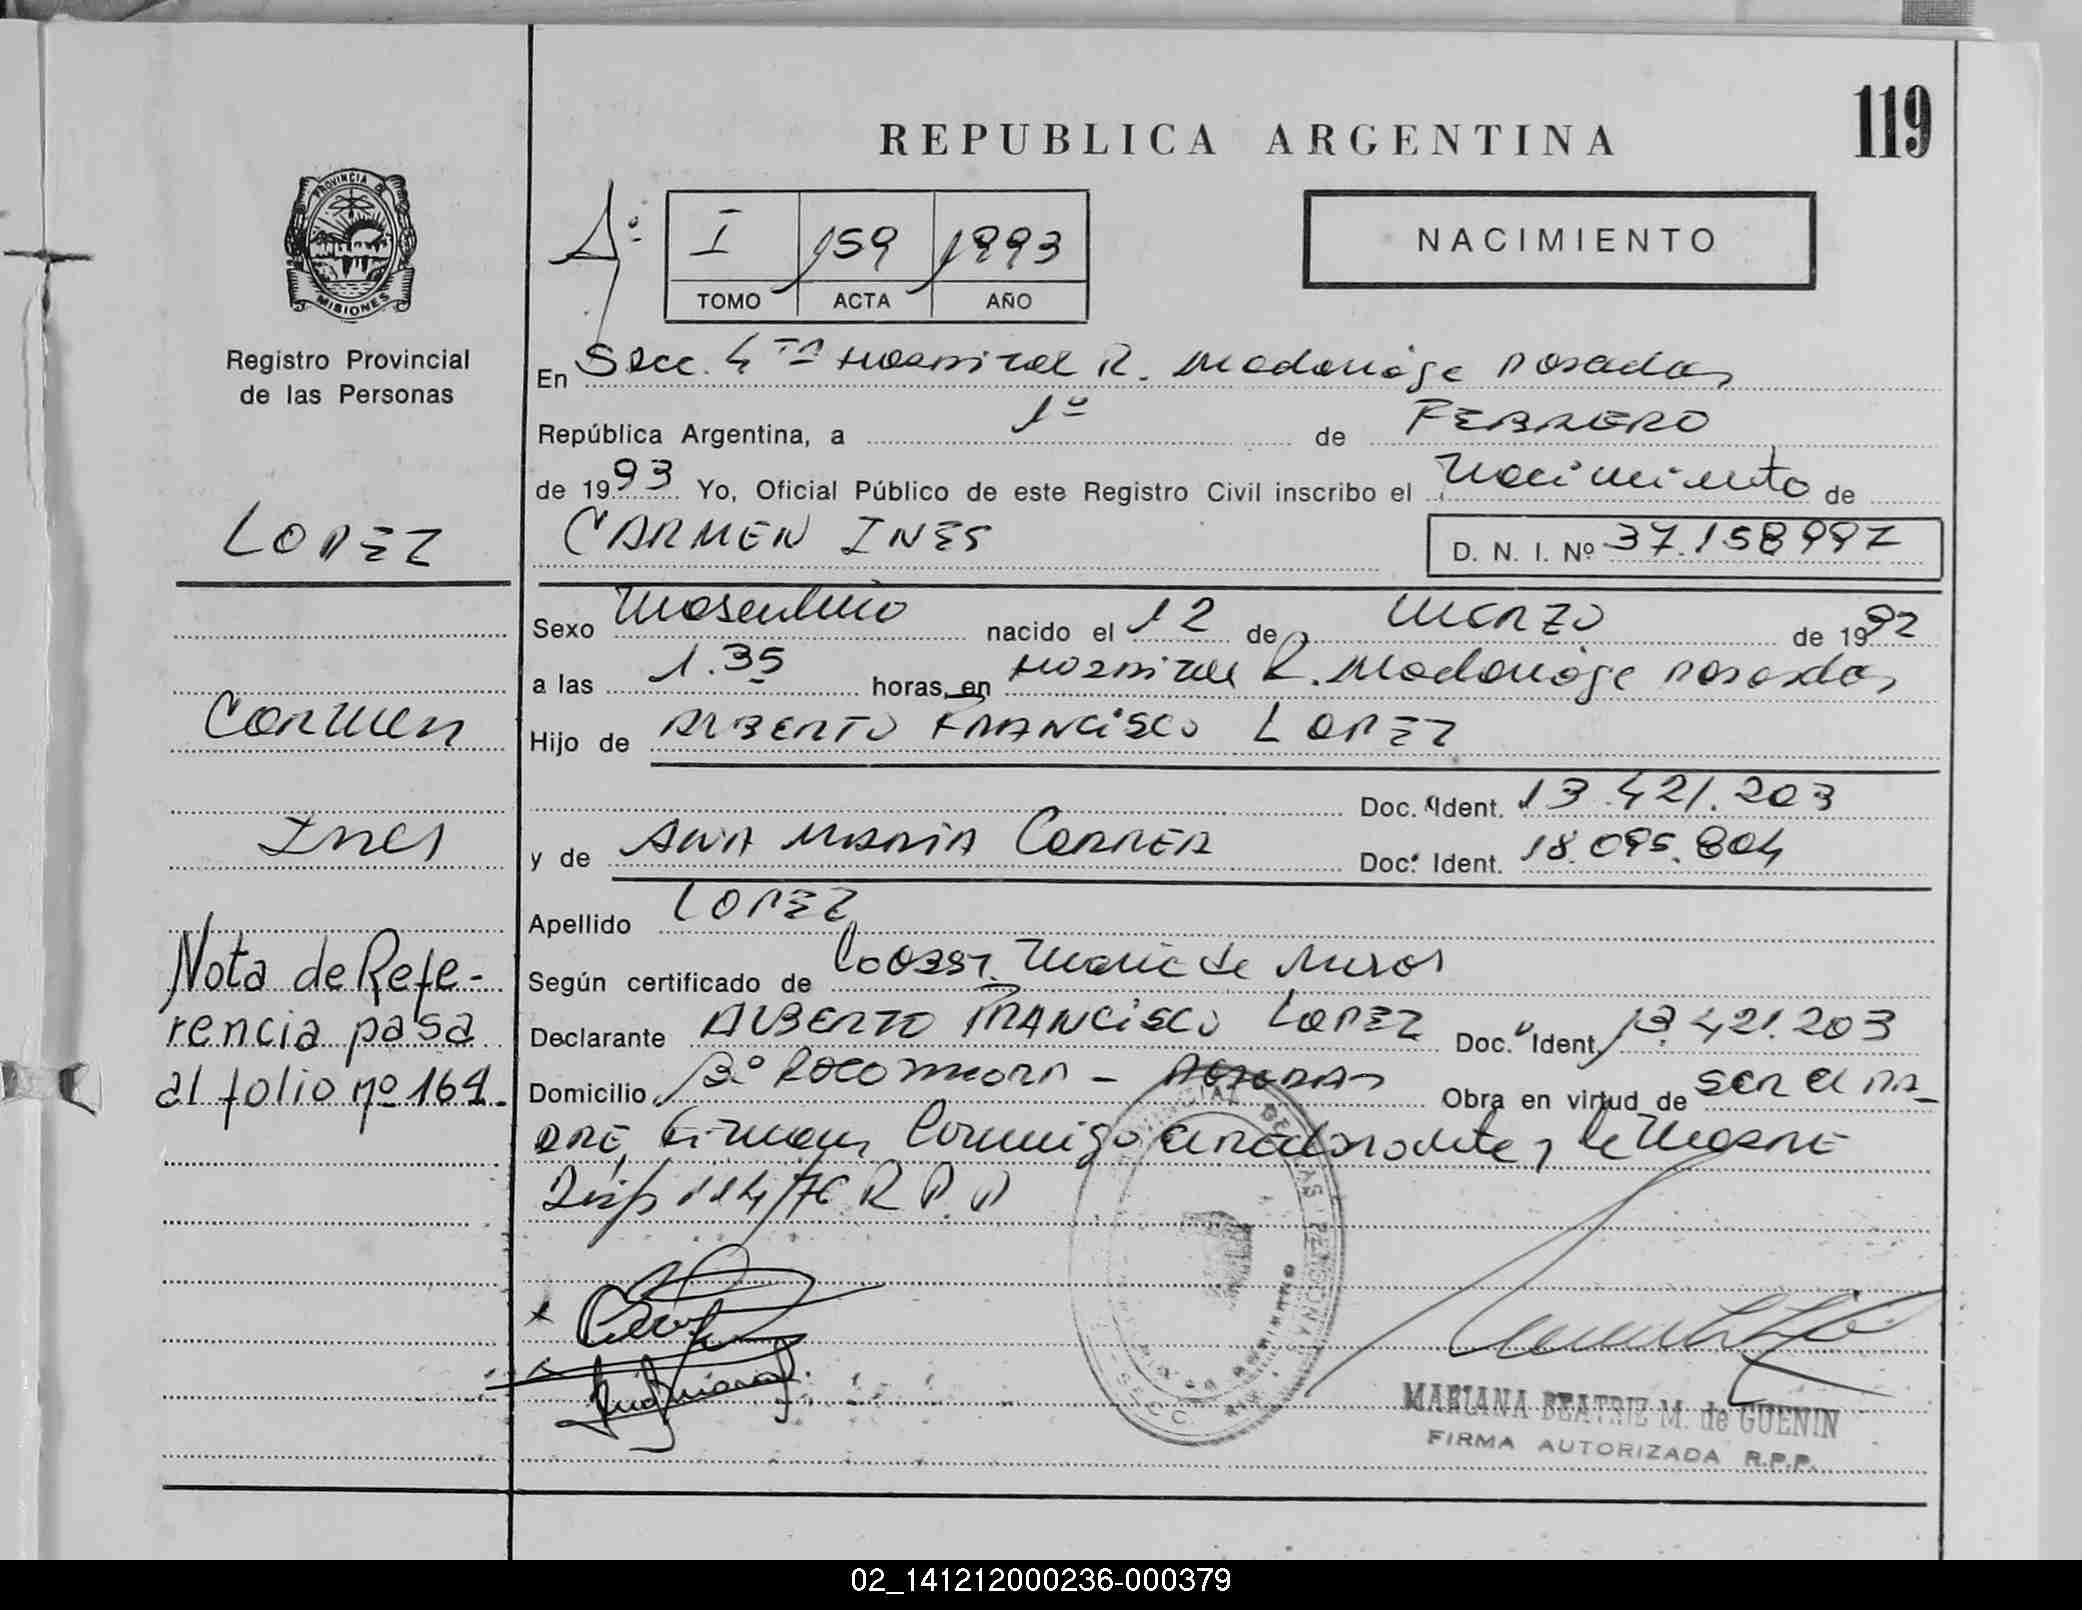 119
REPUBLICA ARGENTINA
PROVINCIA DE
MISIONES
Registro Provincial
de las Personas
I 159 1993
TOMO ACTA AÑO
NACIMIENTO
En Secc. 4ta Hospital R. Madariaga Posadas
República Argentina, a 1º de FEBRERO
de 1993 Yo, Oficial Público de este Registro Civil inscribo el Nacimiento de
CARMEN INES
D. N. I. Nº 37.158997
LOPEZ
Carmen
Ines
Nota de Refe-
rencia pasa
al folio nº 164.
Sexo Masculino nacido el 12 de MARZO de 1992
a las 1.35 horas, en Hospital R. Madariaga Posadas
Hijo de ALBERTO FRANCISCO LOPEZ
Doc. Ident. 13.421.203
y de ANA MARIA CORREA Doc. Ident. 18.095.804
Apellido LOPEZ
Según certificado de Maria de
Declarante ALBERTO FRANCISCO LOPEZ Doc. Ident. 13.421.203
Domicilio Bº Rocamora - POSADAS Obra en virtud de SER el PA-
DRE, Firman Conmigo el Declarante y la MADRE
Disp 114/76 R.P.P
MARIANA BEATRIZ M. de GUENIN
FIRMA AUTORIZADA R.P.P.
02_141212000236-000379